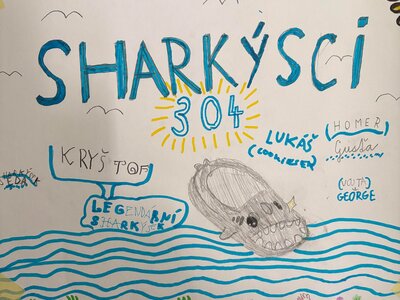 SHARKÝSCI
304
KRYŠTOF
LEGENDÁRNÍ
SHARKÝŠEK
LUKÁŠ
HOMER
Gusťa
(VOJTA)
GEORGE